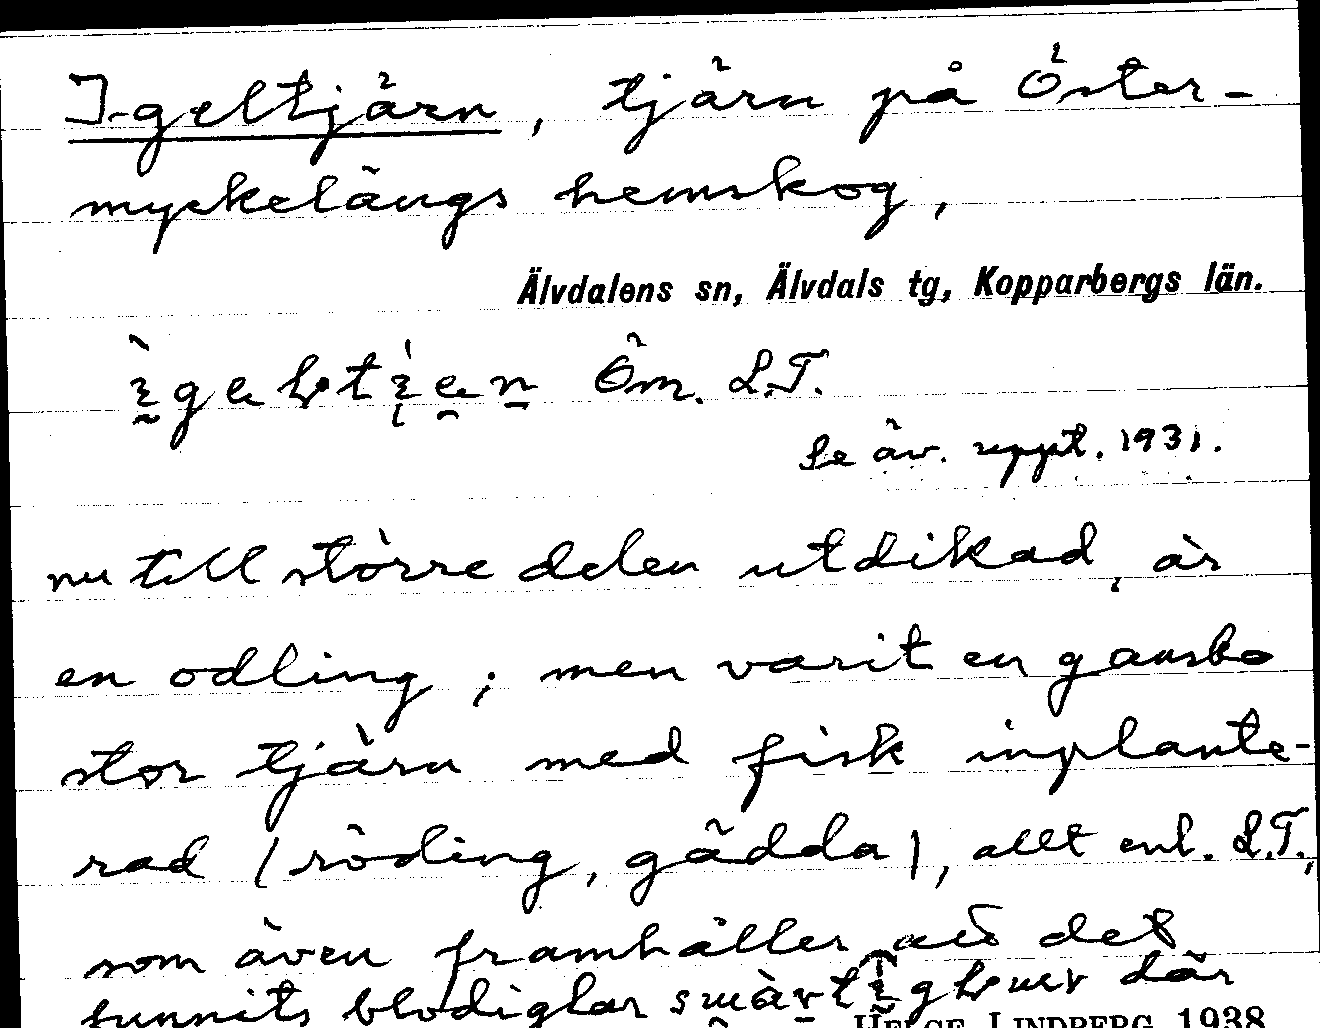 Igeltjärn, tjärn på Öster-
myckelängs hemskog,
Älvdalens sn, Älvdals tg, Kopparbergs län.
Öm. L.T.
Se äv. uppt. 1931.
nu till större delen utdikad, är
en odling; men varit en ganska
stor tjärn med fisk inplante-
rad (röding, gädda), allt enl. L.T.,
som även framhåller att det
funnits blodiglar där
HELGE LINDBERG 1938